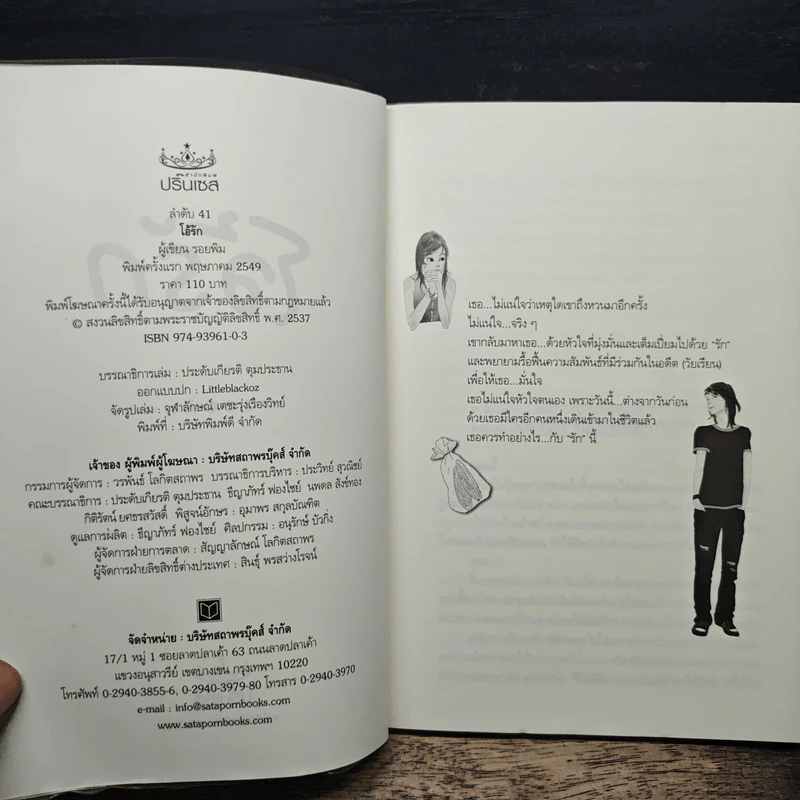 สำนักพิมพ์
ปริ๊นเซส
ลำดับ 41
โอ้รัก
ผู้เขียน รอยพิม
พิมพ์ครั้งแรก พฤษภาคม 2549
ราคา 110 บาท
พิมพ์โฆษณาครั้งนี้ได้รับอนุญาตจากเจ้าของลิขสิทธิ์ตามกฎหมายแล้ว
© สงวนลิขสิทธิ์ตามพระราชบัญญัติลิขสิทธิ์ พ.ศ. 2537
ISBN 974-93961-0-3
บรรณาธิการเล่ม : ประดับเกียรติ ตุมประธาน
ออกแบบปก : Littleblackoz
จัดรูปเล่ม : จุฬาลักษณ์ เตชะรุ่งเรืองวิทย์
พิมพ์ที่ : บริษัทพิมพ์ดี จำกัด
เจ้าของ ผู้พิมพ์ผู้โฆษณา : บริษัทสถาพรบุ๊คส์ จำกัด
กรรมการผู้จัดการ : วรพันธ์ โลกิตสถาพร บรรณาธิการบริหาร : ประวิทย์ สุวณิชย์
คณะบรรณาธิการ : ประดับเกียรติ ตุมประธาน ธีญาภัทร์ ฟองไชย์ นพดล สังข์ทอง
กิติรัตน์ ยศธรสวัสดิ์ พิสูจน์อักษร : อุมาพร สกุลบัณฑิต
ดูแลการผลิต : ธีญาภัทร์ ฟองไชย์ ศิลปกรรม : อนุรักษ์ บัวกิ่ง
ผู้จัดการฝ่ายการตลาด : สัญญาลักษณ์ โลกิตสถาพร
ผู้จัดการฝ่ายลิขสิทธิ์ต่างประเทศ : สินธุ์ พรสว่างโรจน์
จัดจำหน่าย : บริษัทสถาพรบุ๊คส์ จำกัด
17/1 หมู่ 1 ซอยลาดปลาเค้า 63 ถนนลาดปลาเค้า
แขวงอนุสาวรีย์ เขตบางเขน กรุงเทพฯ 10220
โทรศัพท์ 0-2940-3855-6, 0-2940-3979-80 โทรสาร 0-2940-3970
e-mail : info@satapornbooks.com
www.satapornbooks.com
เธอ...ไม่แน่ใจว่าเหตุใดเขาถึงหวนมาอีกครั้ง
ไม่แน่ใจ...จริง ๆ
เขากลับมาหาเธอ...ด้วยหัวใจที่มุ่งมั่นและเต็มเปี่ยมไปด้วย “รัก”
และพยายามรื้อฟื้นความสัมพันธ์ที่มีร่วมกันในอดีต (วัยเรียน)
เพื่อให้เธอ...มั่นใจ
เธอไม่แน่ใจหัวใจตนเอง เพราะวันนี้...ต่างจากวันก่อน
ด้วยเธอมีใครอีกคนหนึ่งเดินเข้ามาในชีวิตแล้ว
เธอควรทำอย่างไร...กับ “รัก” นี้